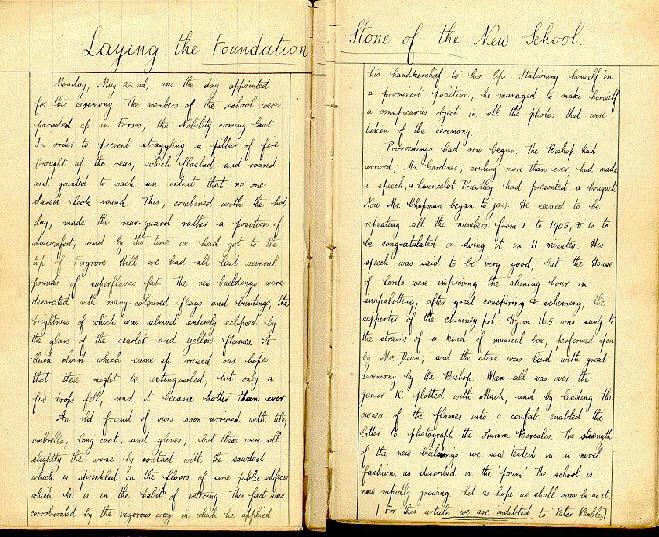 Laying the Foundation
Stone of the New School.
Monday, May 22nd, was the day appointed
for the ceremony. The members of the school were
paraded up in Forms, the Nobility coming last.
In order to prevent straggling a pillar of fire
brought up the rear, which flashed and roared
and to such an extent that no one
dared look round. This, combined with the hot
day, made the rear-guard rather a position of
discomfort, and by the time we had got to the
top of Hill we had all lost several
pounds of superfluous fat. The new buildings were
decorated with many-coloured flags and buntings, the
brightness of which was almost entirely eclipsed by
the glare of the scarlet and yellow flames. A
which came up raised our hopes
that these might be extinguished, but only a
few drops fell, and it became hotter than ever.
An old friend of ours soon arrived with
umbrella, long coat, and gloves, and
slightly the worse by contact with the sawdust
which is sprinkled on the floors of some public edifices
which he is in the habit of entering. This fact was
corroborated by the vigorous way in which he applied
his handkerchief to his lip. Stationing himself in
a prominent position, he managed to make himself
a conspicuous object in all the photos that were
taken of the ceremony.
Proceedings had now begun. The Bishop had
arrived, Mr. Gardner, smiling more than ever, had made
a speech, & Lancelot had presented a bouquet.
Now Mr. Chapman began to jaw. He seemed to be
repeating all the numbers from 1 to 1905, & is to
be congratulated on doing it in 11 minutes. His
speech was said to be very good, but the House
of Lords were improving the shining hour in
snapshotting, after great conspiring & scheming, the
of the Hymn 165 was sung to
the strains of a kind of musical box, performed upon
by Mr. and the stone was laid with great
ceremony by the Bishop. When all was over the
junior K. plotted with and by breaking the
news of the flames into a enabled the
latter to photograph the Aurora Borealis. The strength
of the new buildings we was tested in a novel
fashion, as described in the 'poem'. The school is
now actually growing. Let us hope we shall soon be in it.
[For this article we are indebted to Peter